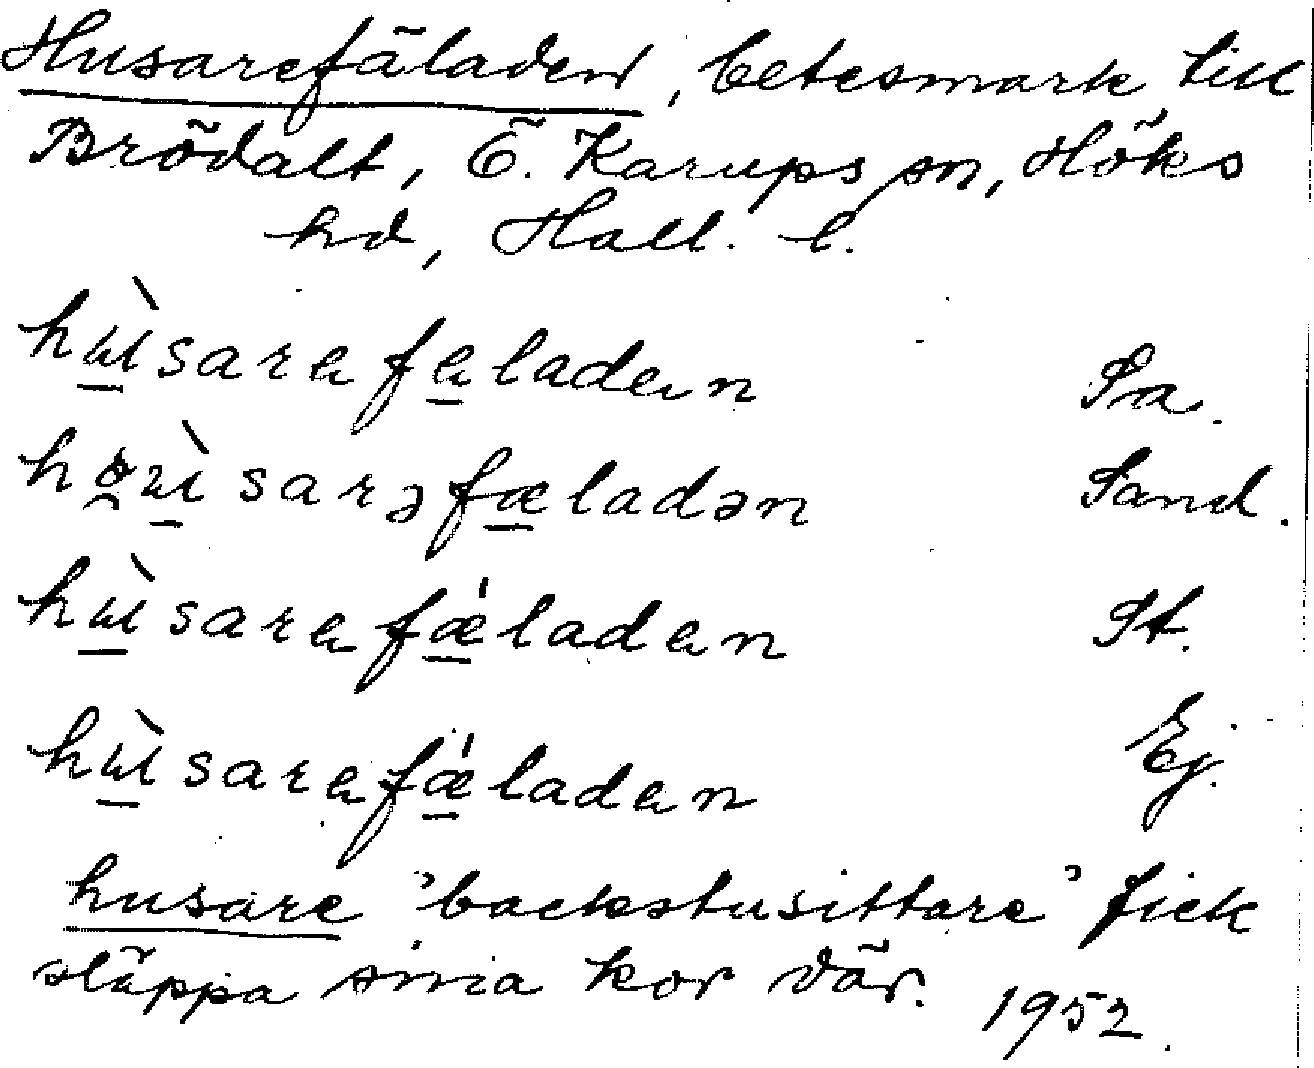 Husarefäladen, betesmark till
Brödalt, Ö. Karups sn, Höks
hd, Hall. l.
hɯ̱̀sarefe̱laden Sa.
ho̯ɯ̱̀sarəfæ̱ladən Sand.
hɯ̱̀sarefǽ̱laden St.
hɯ̱̀sarefǽ̱laden Ej.
husare 'backstusittare' fick
släppa sina kor där. 1952.